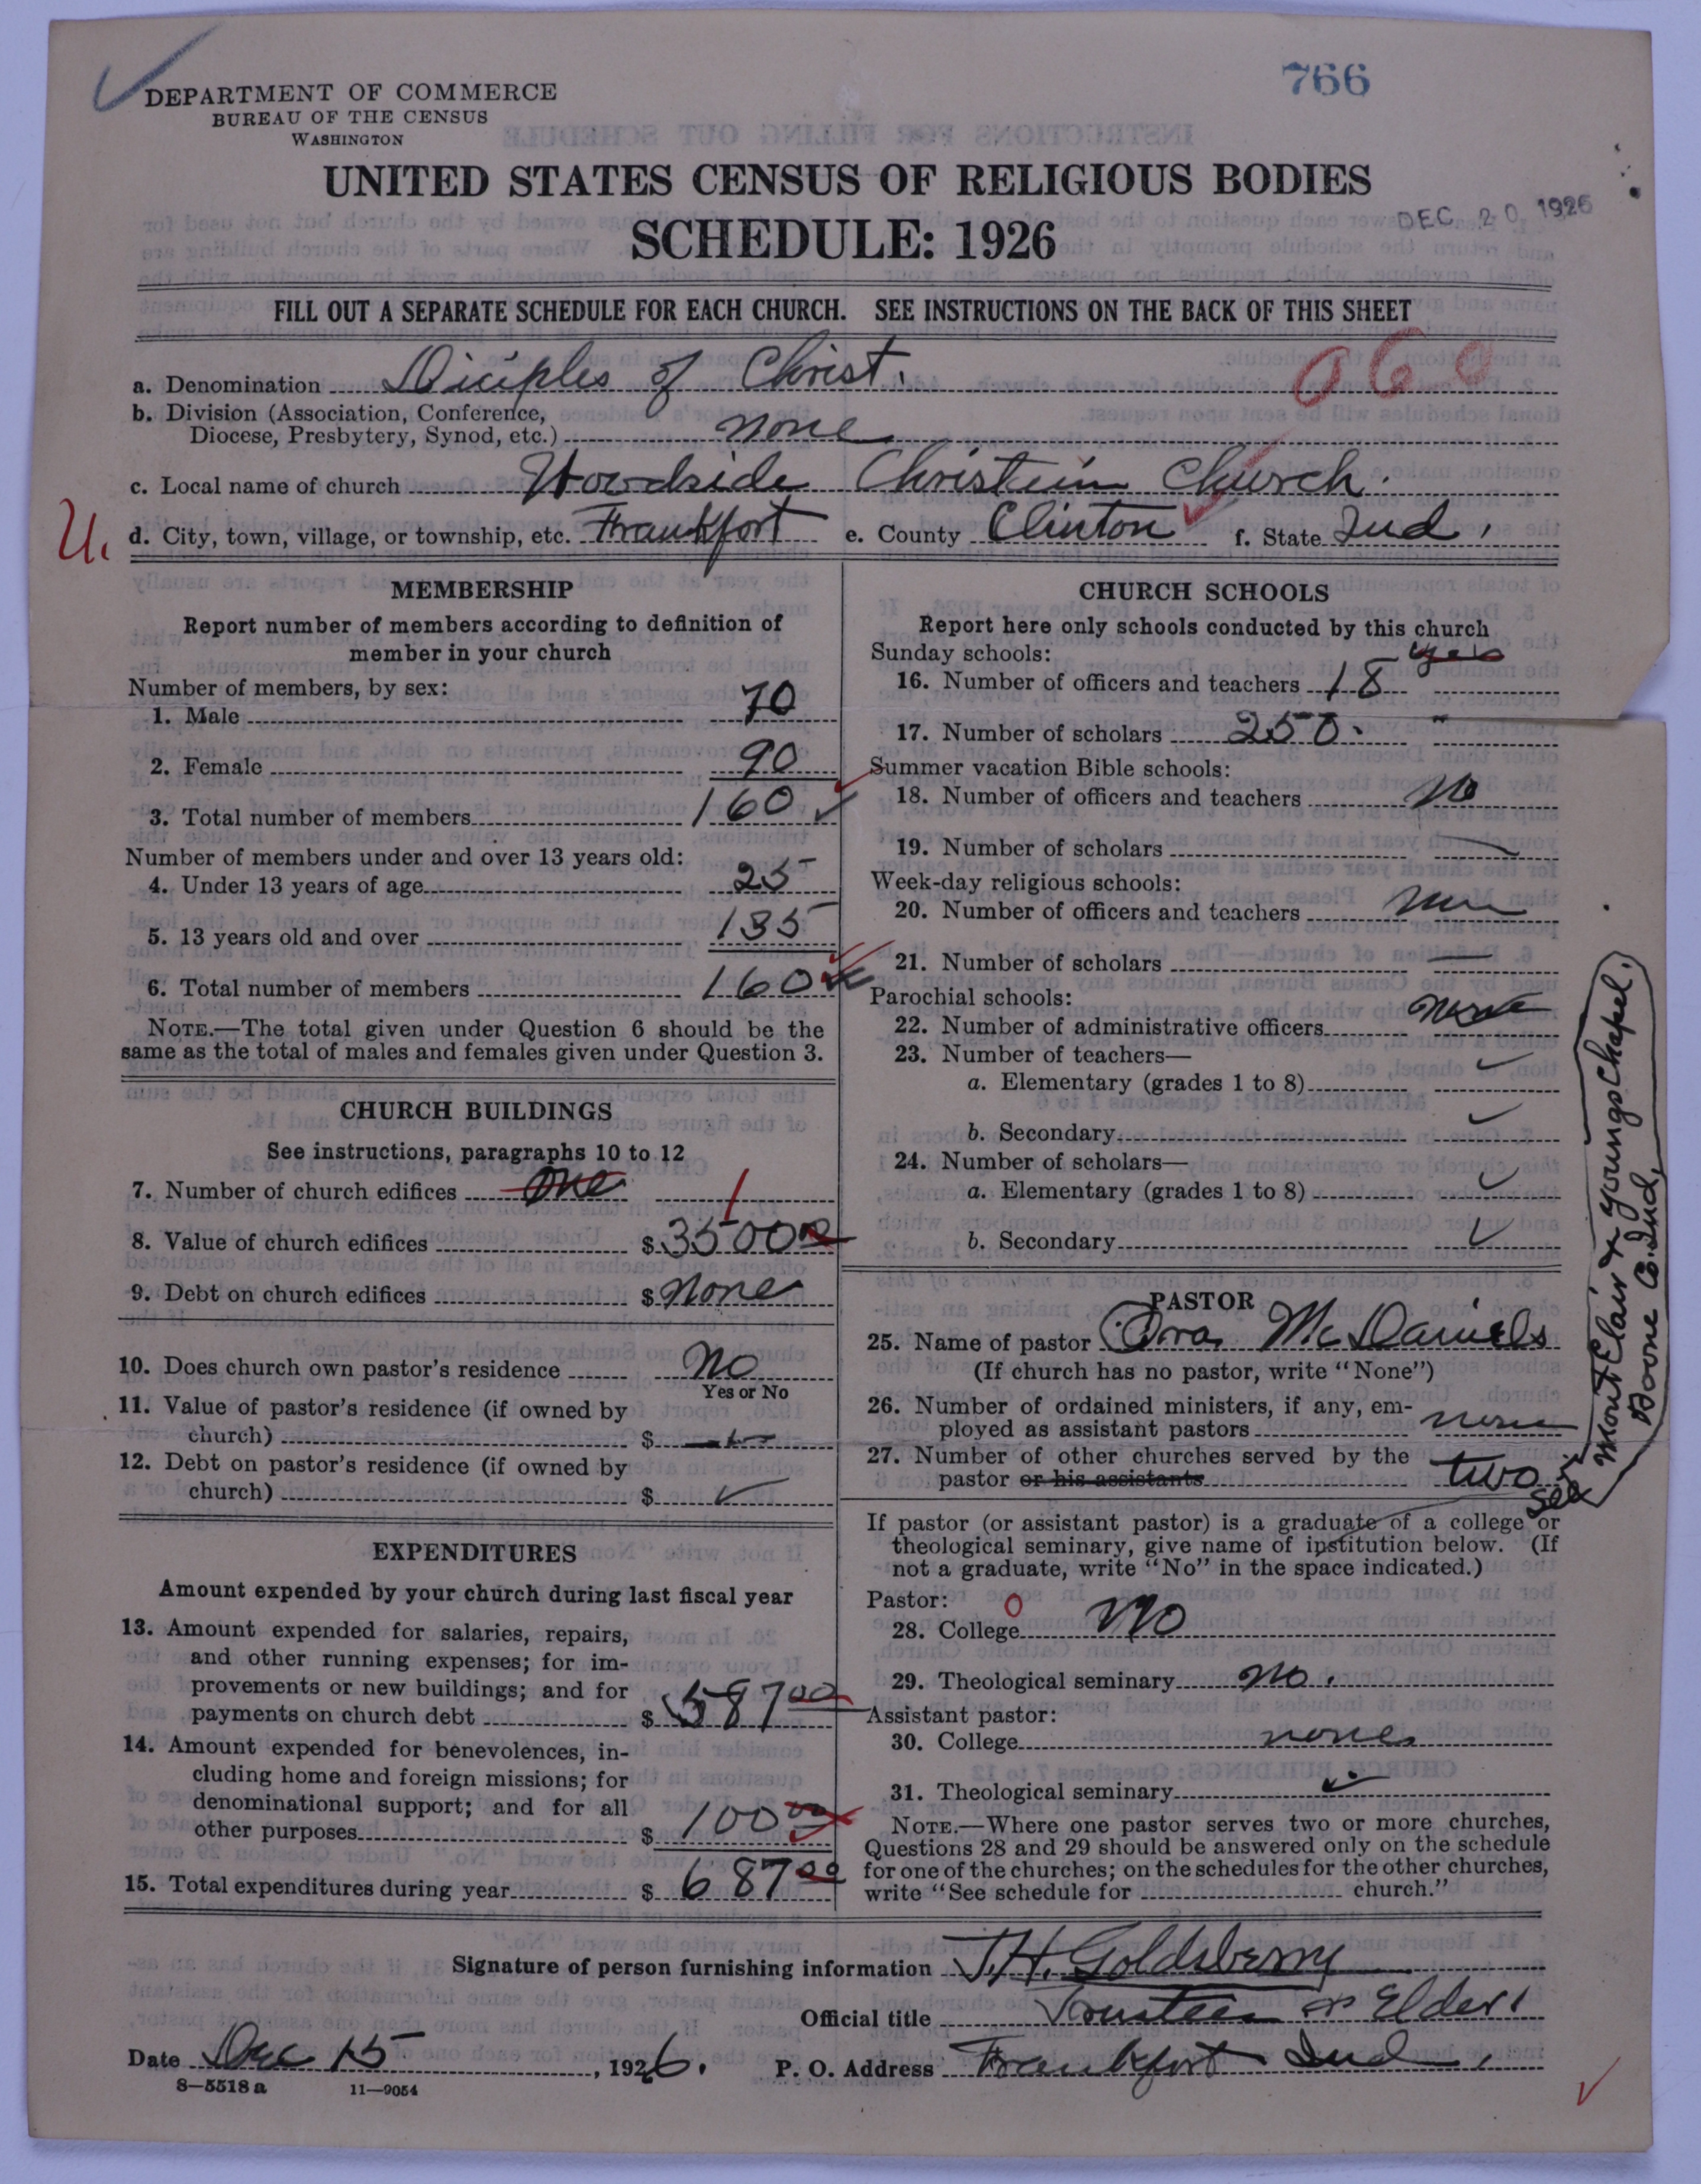 766
DEPARTMENT OF COMMERCE
BUREAU OF THE CENSUS
WASHINGTON
UNITED STATES CENSUS OF RELIGIOUS BODIES
SCHEDULE: 1926
DEC 20 1926
FILL OUT A SEPARATE SCHEDULE FOR EACH CHURCH. SEE INSTRUCTIONS ON THE BACK OF THIS SHEET
060
a. Denomination Diciples of Christ.
b. Division (Association, Conference,
Diocese, Presbytery, Synod, etc.) none
c. Local name of church Woodside Christain Church.
U. d. City, town, village, or township, etc. Frankfort e. County Clinton f. State Ind.
MEMBERSHIP
Report number of members according to definition of
member in your church
Number of members, by sex:
1. Male 70
2. Female 90
3. Total number of members 160
Number of members under and over 13 years old:
4. Under 13 years of age 25
5. 13 years old and over 135
6. Total number of members 160
NOTE.—The total given under Question 6 should be the
same as the total of males and females given under Question 3.
CHURCH BUILDINGS
See instructions, paragraphs 10 to 12
7. Number of church edifices one 1
8. Value of church edifices $ 3500 00
9. Debt on church edifices $ none
10. Does church own pastor's residence no
Yes or No
11. Value of pastor's residence (if owned by
church) $
12. Debt on pastor's residence (if owned by
church) $ ✓
EXPENDITURES
Amount expended by your church during last fiscal year
13. Amount expended for salaries, repairs,
and other running expenses; for im-
provements or new buildings; and for
payments on church debt $ 587 00
14. Amount expended for benevolences, in-
cluding home and foreign missions; for
denominational support; and for all
other purposes $ 100 00
15. Total expenditures during year $ 687 00
CHURCH SCHOOLS
Report here only schools conducted by this church
Sunday schools: yes
16. Number of officers and teachers 18
17. Number of scholars 250.
Summer vacation Bible schools:
18. Number of officers and teachers no
19. Number of scholars
Week-day religious schools:
20. Number of officers and teachers
21. Number of scholars —
Parochial schools:
22. Number of administrative officers none
23. Number of teachers—
a. Elementary (grades 1 to 8) ✓
b. Secondary ✓
24. Number of scholars—
a. Elementary (grades 1 to 8) ✓
b. Secondary ✓
PASTOR
25. Name of pastor Ora McDaniels
(If church has no pastor, write "None")
26. Number of ordained ministers, if any, em-
ployed as assistant pastors none
27. Number of other churches served by the
pastor or his assistants two
see
Mont Clair & Youngs Chapel.
Boone Co. Ind.
If pastor (or assistant pastor) is a graduate of a college or
theological seminary, give name of institution below. (If
not a graduate, write "No" in the space indicated.)
Pastor: 0
28. College no
29. Theological seminary no.
Assistant pastor:
30. College none
31. Theological seminary ✓
NOTE.—Where one pastor serves two or more churches,
Questions 28 and 29 should be answered only on the schedule
for one of the churches; on the schedules for the other churches,
write "See schedule for church."
Signature of person furnishing information J. H. Goldsberry
Official title Trustee or Elder.
Date Dec 15, 1926. P. O. Address Frankfort Ind.
8—5518 a 11—9054